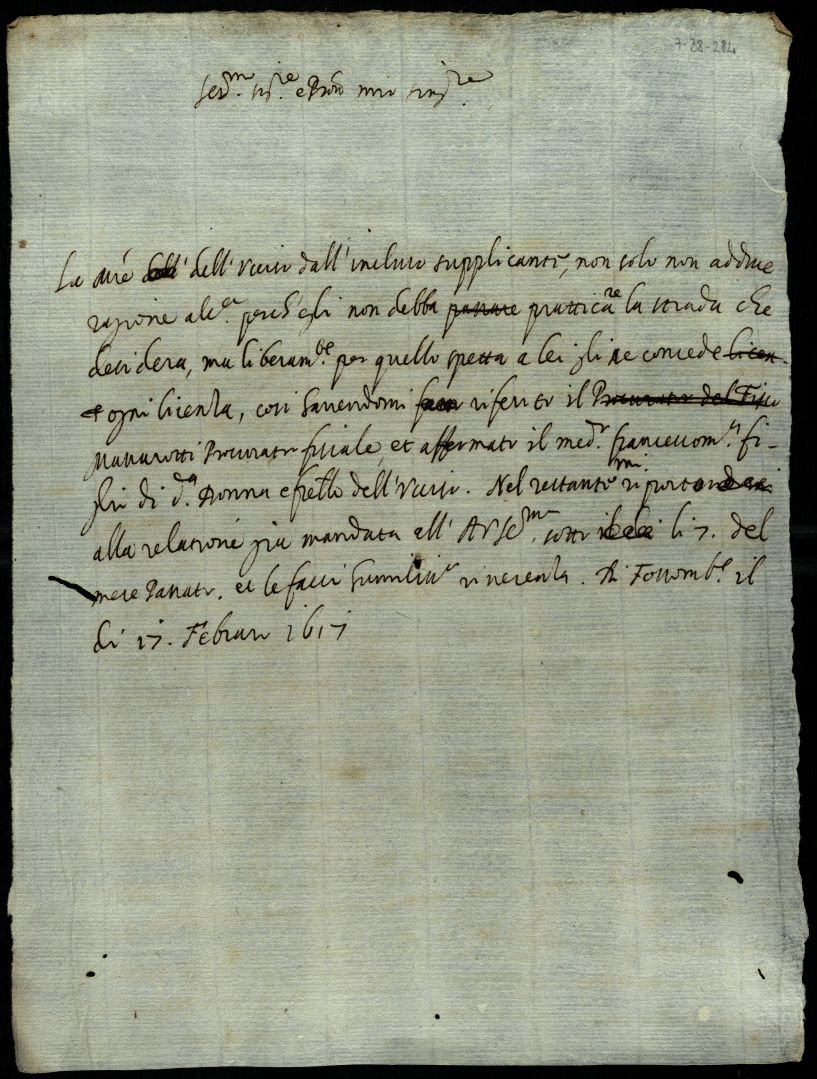 7-28-284
Ser.mo Sig.re e Pron mio sing.re
La m.e dell' Ucciso dall' incluso supplicante, non solo non adduce
ragione alc.a perch'egli non debba passare pratticare la strada che
desidera, ma liberam.te per quello spetta a lei gli ne concede licen-
ogni licenza, così havendomi riferito il Procurator del Fisco
Procurator fiscale, et affermato il med.o francescom.a fi-
glio di d.a Donna e fratello dell' Ucciso. Nel restante mi riporto
alla relatione già mandata all' A.V. Ser.ma sotto li 7. del
mese passato. et le facci humiliss.a riverenza. Di Fossomb.e il
di 17. Febraro 1617